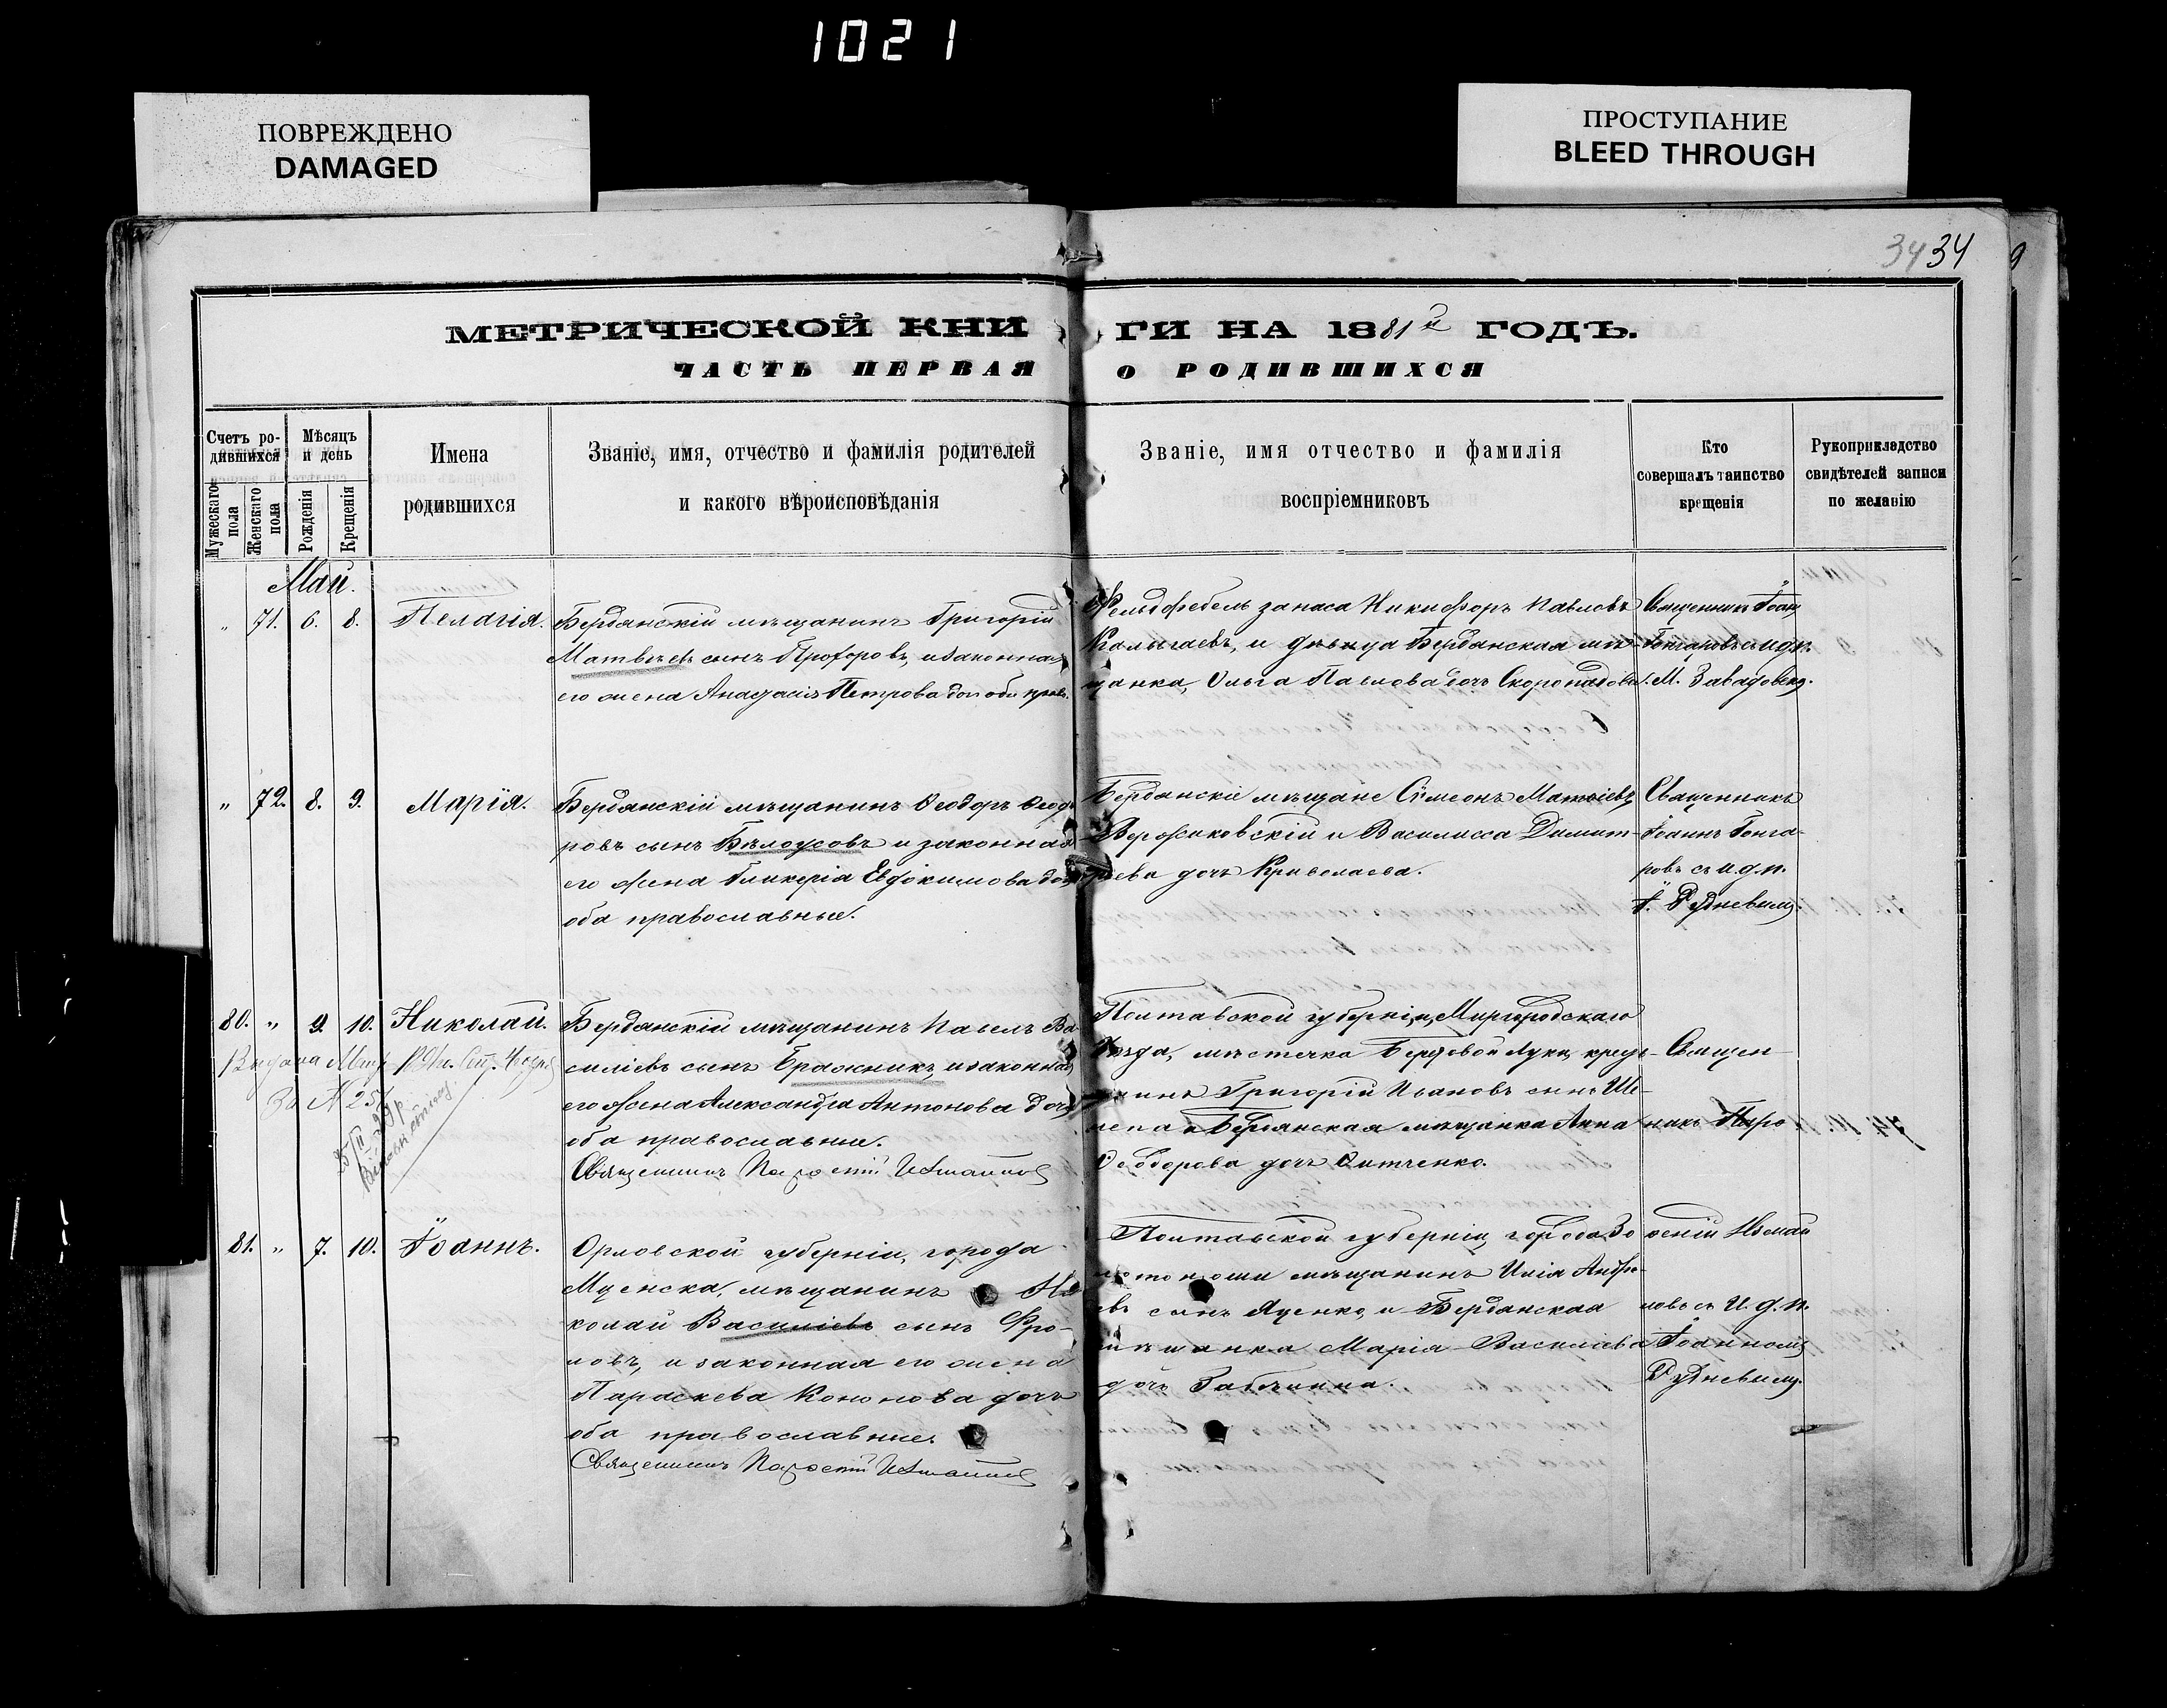 1021
ПОВРЕЖДЕНО
DAMAGED
ПРОСТУПАНИЕ
BLEED THROUGH
34 34
9
МЕТРИЧЕСКОЙ КНИ ГИ НА 1881й ГОДЪ.
ЧАСТЬ ПЕРВАЯ О РОДИВШИХСЯ
Счетъ ро-
дившихся
Мужескаго пола
Женскаго пола
Мѣсяцъ
и день
Рожденія
Крещенія
Имена
родившихся
Званіе, имя, отчество и фамилія родителей
и какого вѣроисповѣданія
Званіе, имя отчество и фамилія
воспріемниковъ
Кто
совершалъ таинство
крещенія
Рукоприкладство
свидѣтелей записи
по желанію
Май.
„ 71. 6. 8. Пелагія.
Бердянскій мѣщанинъ Григорій
Матвѣевъ сынъ Прохоровъ, и законная
его жена Анастасія Петрова доч оба прав.
Фельдфебель запаса Никифоръ Павловъ
Калыгаевъ, и дѣвица Бердянская мѣ-
щанка, Ольга Павлова дочь
Священникъ Іоан
Гончаровъ съ и.д.п.
М. Завадовск.
„ 72. 8. 9. Марія.
Бердянскій мѣщанинъ Ѳеодоръ Ѳеодо
ровъ сынъ Бѣлоусовъ и законная
его жена Гликерія Евдокимова доч
оба православные.
Бердянскіе мѣщане Сѵмеонъ Матвіевъ
и Василисса Димит-
ріева дочь
Священникъ
Іоаннъ Гонча-
ровъ съ и.д.п.
І. Рудневымъ.
80. „ 9. 10. Николай.
Бердянскій мѣщанинъ Павелъ Ва
силіевъ сынъ Бражникъ, и законная
его жена Александра Антонова дочь
оба православные.
Священникъ Пароеній Измаиловъ
Выдана
За № 25
Полтавской губерніи, Миргородскаго
уѣзда, мѣстечка Береговой Луки, кресть-
янинъ Григорій Ивановъ сынъ Ше-
пепа и Бердянская мѣщанка Анна
Ѳеодорова дочь
Священ-
никъ Парѳ
81. „ 7. 10. Іоаннъ.
Орловской губерніи, города
Мценска, мѣщанинъ Ни
колай Василіевъ сынъ Фро-
ловъ, и законная его жена
Параскева Кононова дочь
оба православные.
Священникъ Пароеній Измаиловъ
Полтавской губерніи, города Зо
лотоноши мѣщанинъ Илія Андре-
евъ сынъ Яценко, и Бердянская
мѣщанка Марія Василіева
дочь
оеній Измаи
ловъ съ И.д.п.
Іоанномъ
Рудневымъ.